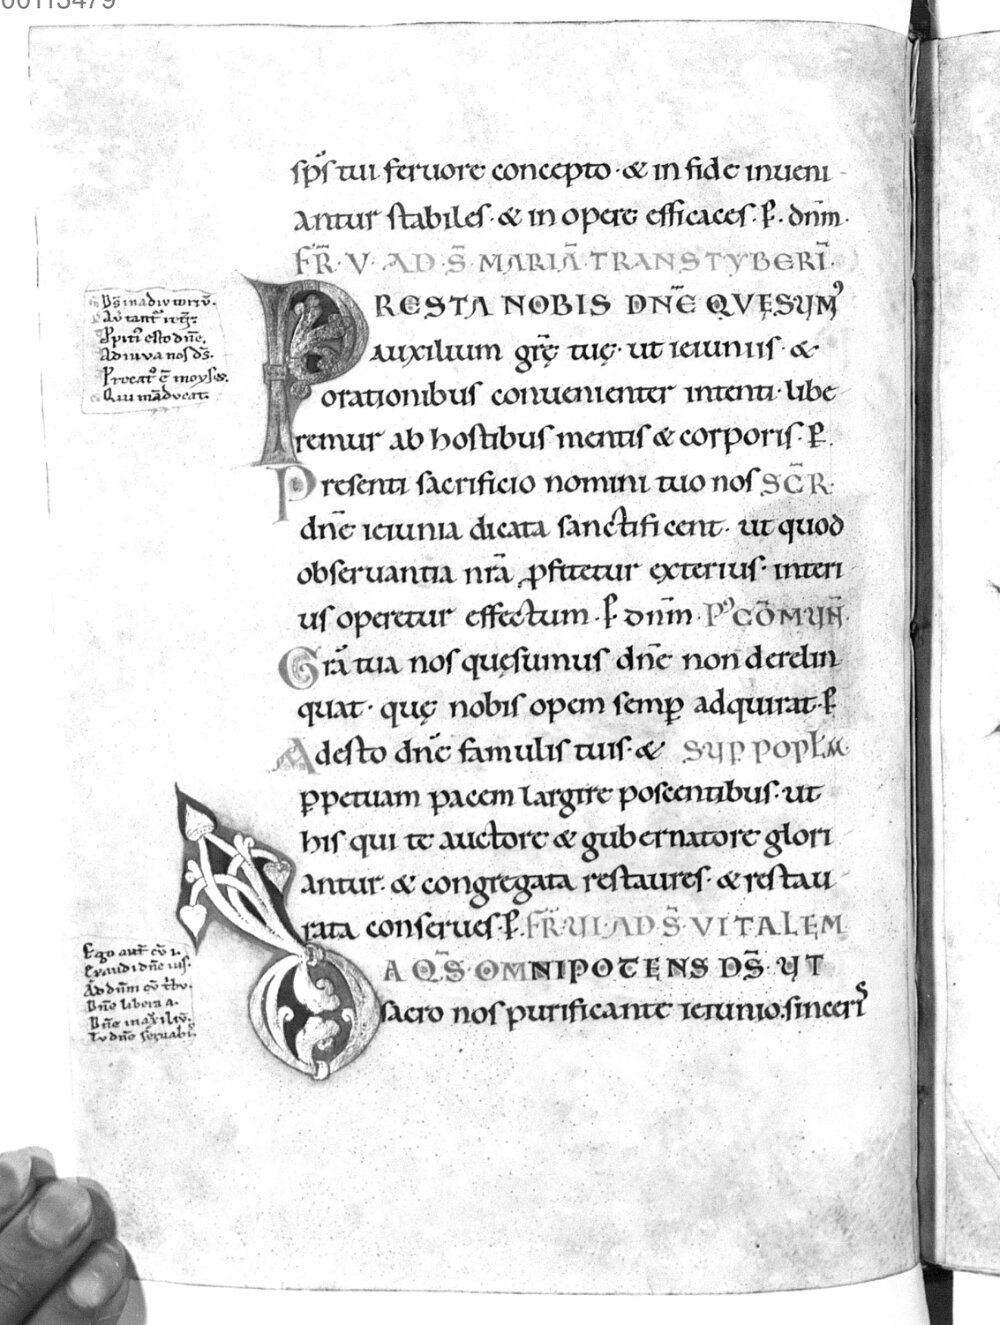 00113479
sp̅s tui feruore concepto · & in fide inueni
antur stabiles · & in opere efficaces · P̲ · dnm̅ ·
FR̅ · V · AD · S̅ · MARIA̅ · TRANSTYBERI̅ ·
PRESTA NOBIS DNE̅ QVĘSUM᾽
auxilium gr̅ę tuę · ut ieiuniis · &
orationibus conuenienter intenti · libe
remur ab hostibus mentis & corporis · P̲ ·
Presenti sacrificio nomini tuo nos SC̅R ·
dne̅ ieiunia dicata sanctificent · ut quod
obseruantia nra̅ ꝓfitetur exterius · interi
us operetur effectum · P̲ dnm̅ · P᾽ CO̅MUN̅ ·
Gra̅ tua nos quęsumus dne̅ non derelin
quat · quę nobis opem semꝑ adquirat · P̲
Adesto dne̅ famulis tuis · & SUP POPƚM ·
ꝑpetuam pacem largire poscentibus · ut
his qui te auctore & gubernatore glori
antur · & congregata restaures · & restau
rata conserues · P̲ · FR̅ · VI · AD · S̅ · VITALEM
DA Q̅S · OMNIPOTENS DS̅ · UT
sacro nos purificante ieiunio · sinceris
Ds̅ in adiutoriu̅ ·
Ppiti᾽ esto dne̅ ·
Adiuua nos ds̅ ·
Precat᾽ e̅ moyses ·
Ego aut̅ cu̅ i ·
Exaudi dne̅ ius ·
Ad dn̅m cu̅ tr̅bu ·
Dne̅ libera a ·
Dne̅ in auxiliu̅ ·
Tu dne̅ seruabi ·